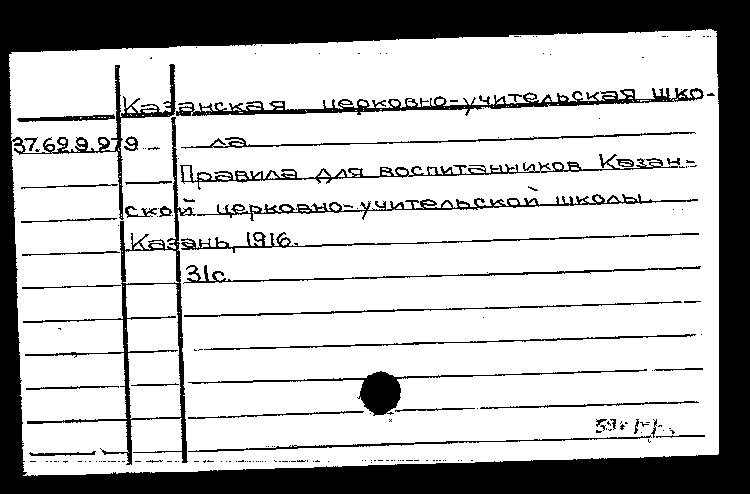 Казанская церковно-учительская шко-
37.69.9.979 – ла
Правила для воспитанников Казан-
ской церковно-учительской школы.
Казань, 1916.
31с.